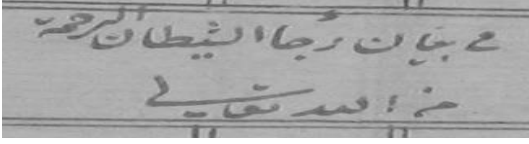 في بيان رجا الشيطان الرحمة
من الله تعالى